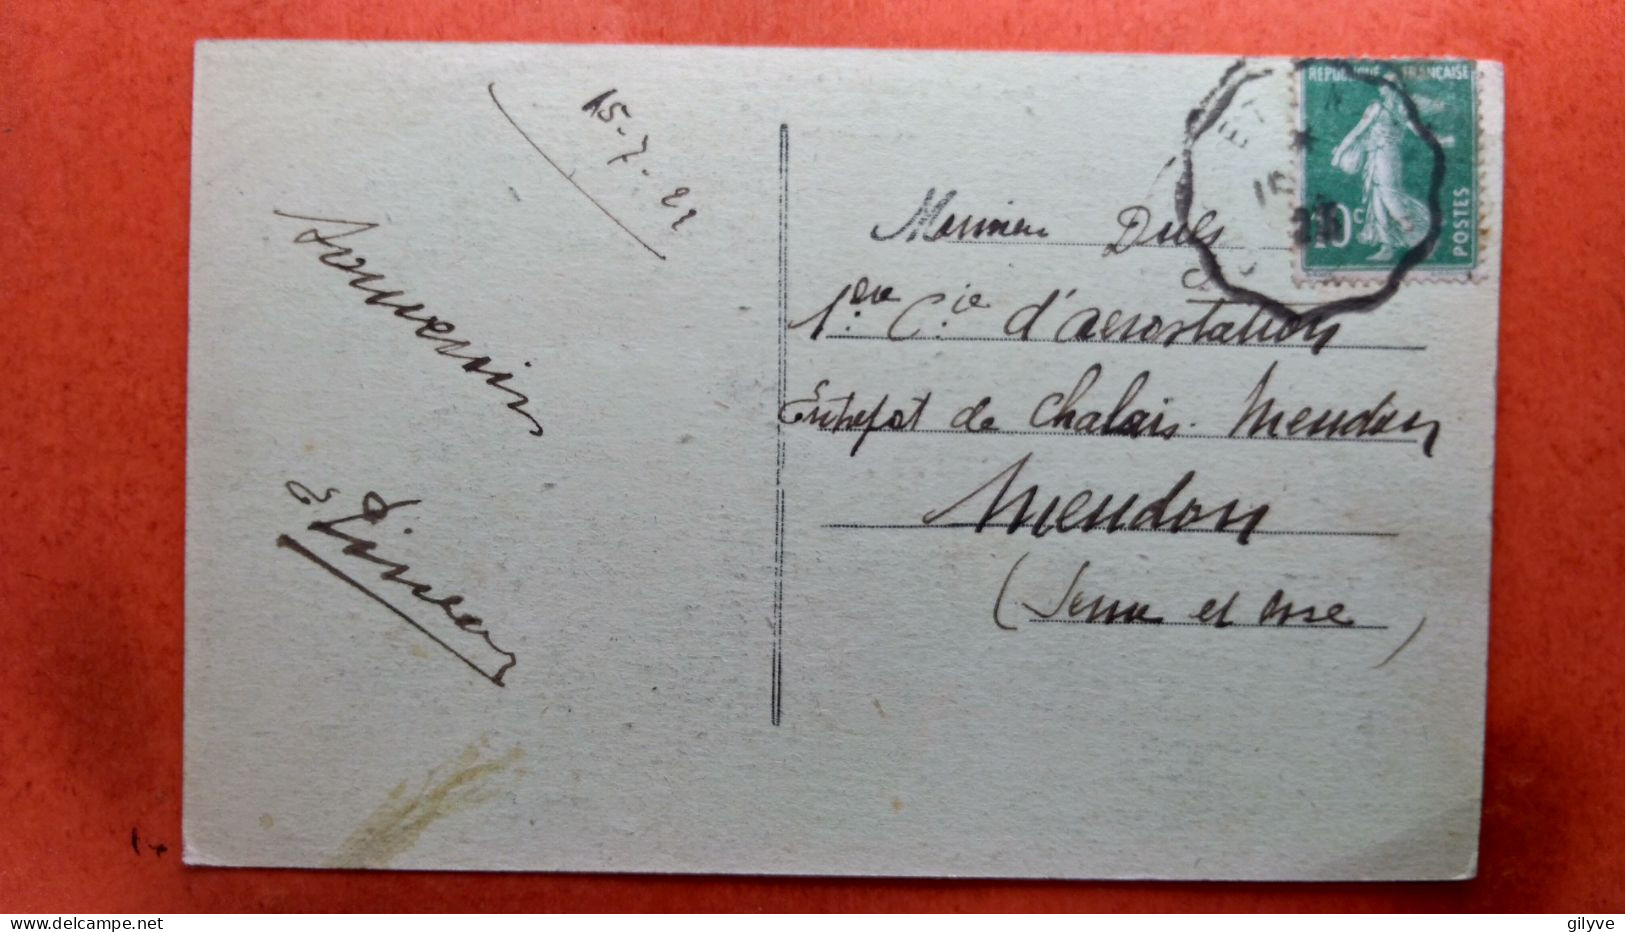 15-7-22
Souvenir
RÉPUBLIQUE FRANÇAISE
10c
POSTES
ET
Monsieur Duls
1ère Cie d'aerostation
Entrepot de Chalais. Meudon
Meudon
(Seine et Oise)
gilyve